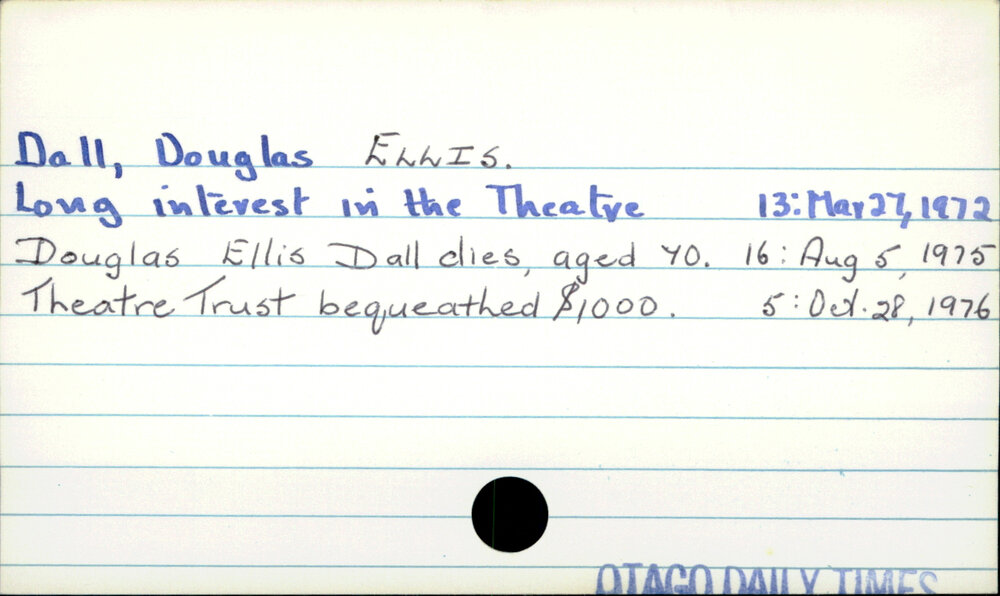 Dall, Douglas ELLIS.
Long interest in the Theatre 13: Mar 27, 1972
Douglas Ellis Dall dies, aged 70. 16: Aug 5, 1975
Theatre Trust bequeathed $1000. 5: Oct. 28, 1976
OTAGO DAILY TIMES